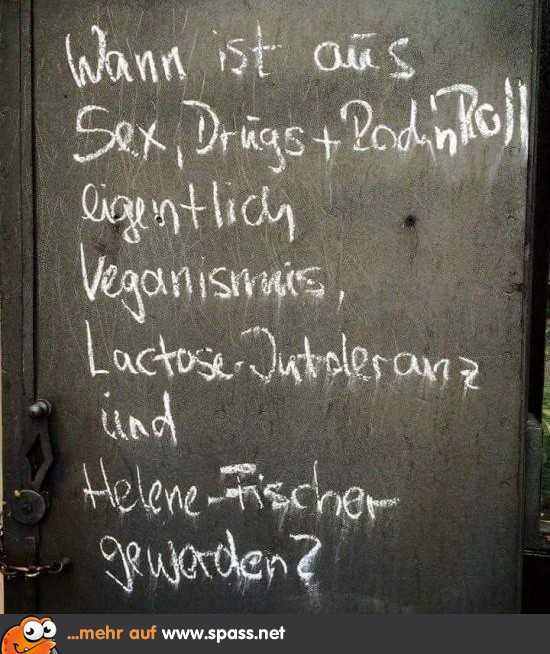 Wann ist aus
Sex, Drugs + Rock'n Roll
eigentlich
Veganismus,
Lactose-Intoleranz
und
Helene-Fischer
geworden?
...mehr auf www.spass.net